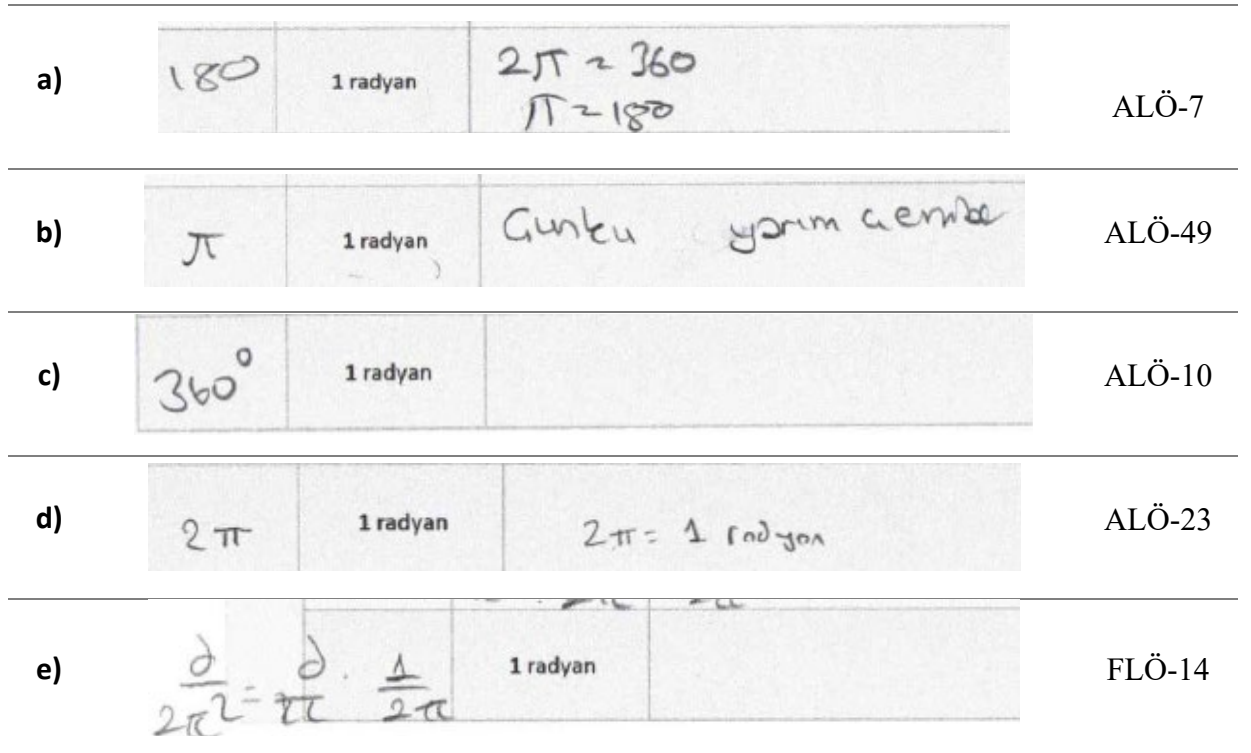 a) 180 1 radyan 2π = 360 ALÖ-7
π = 180
b) π 1 radyan Çünkü yarım çember ALÖ-49
c) 360° 1 radyan ALÖ-10
d) 2π 1 radyan 2π = 1 radyan ALÖ-23
e) 1 radyan FLÖ-14